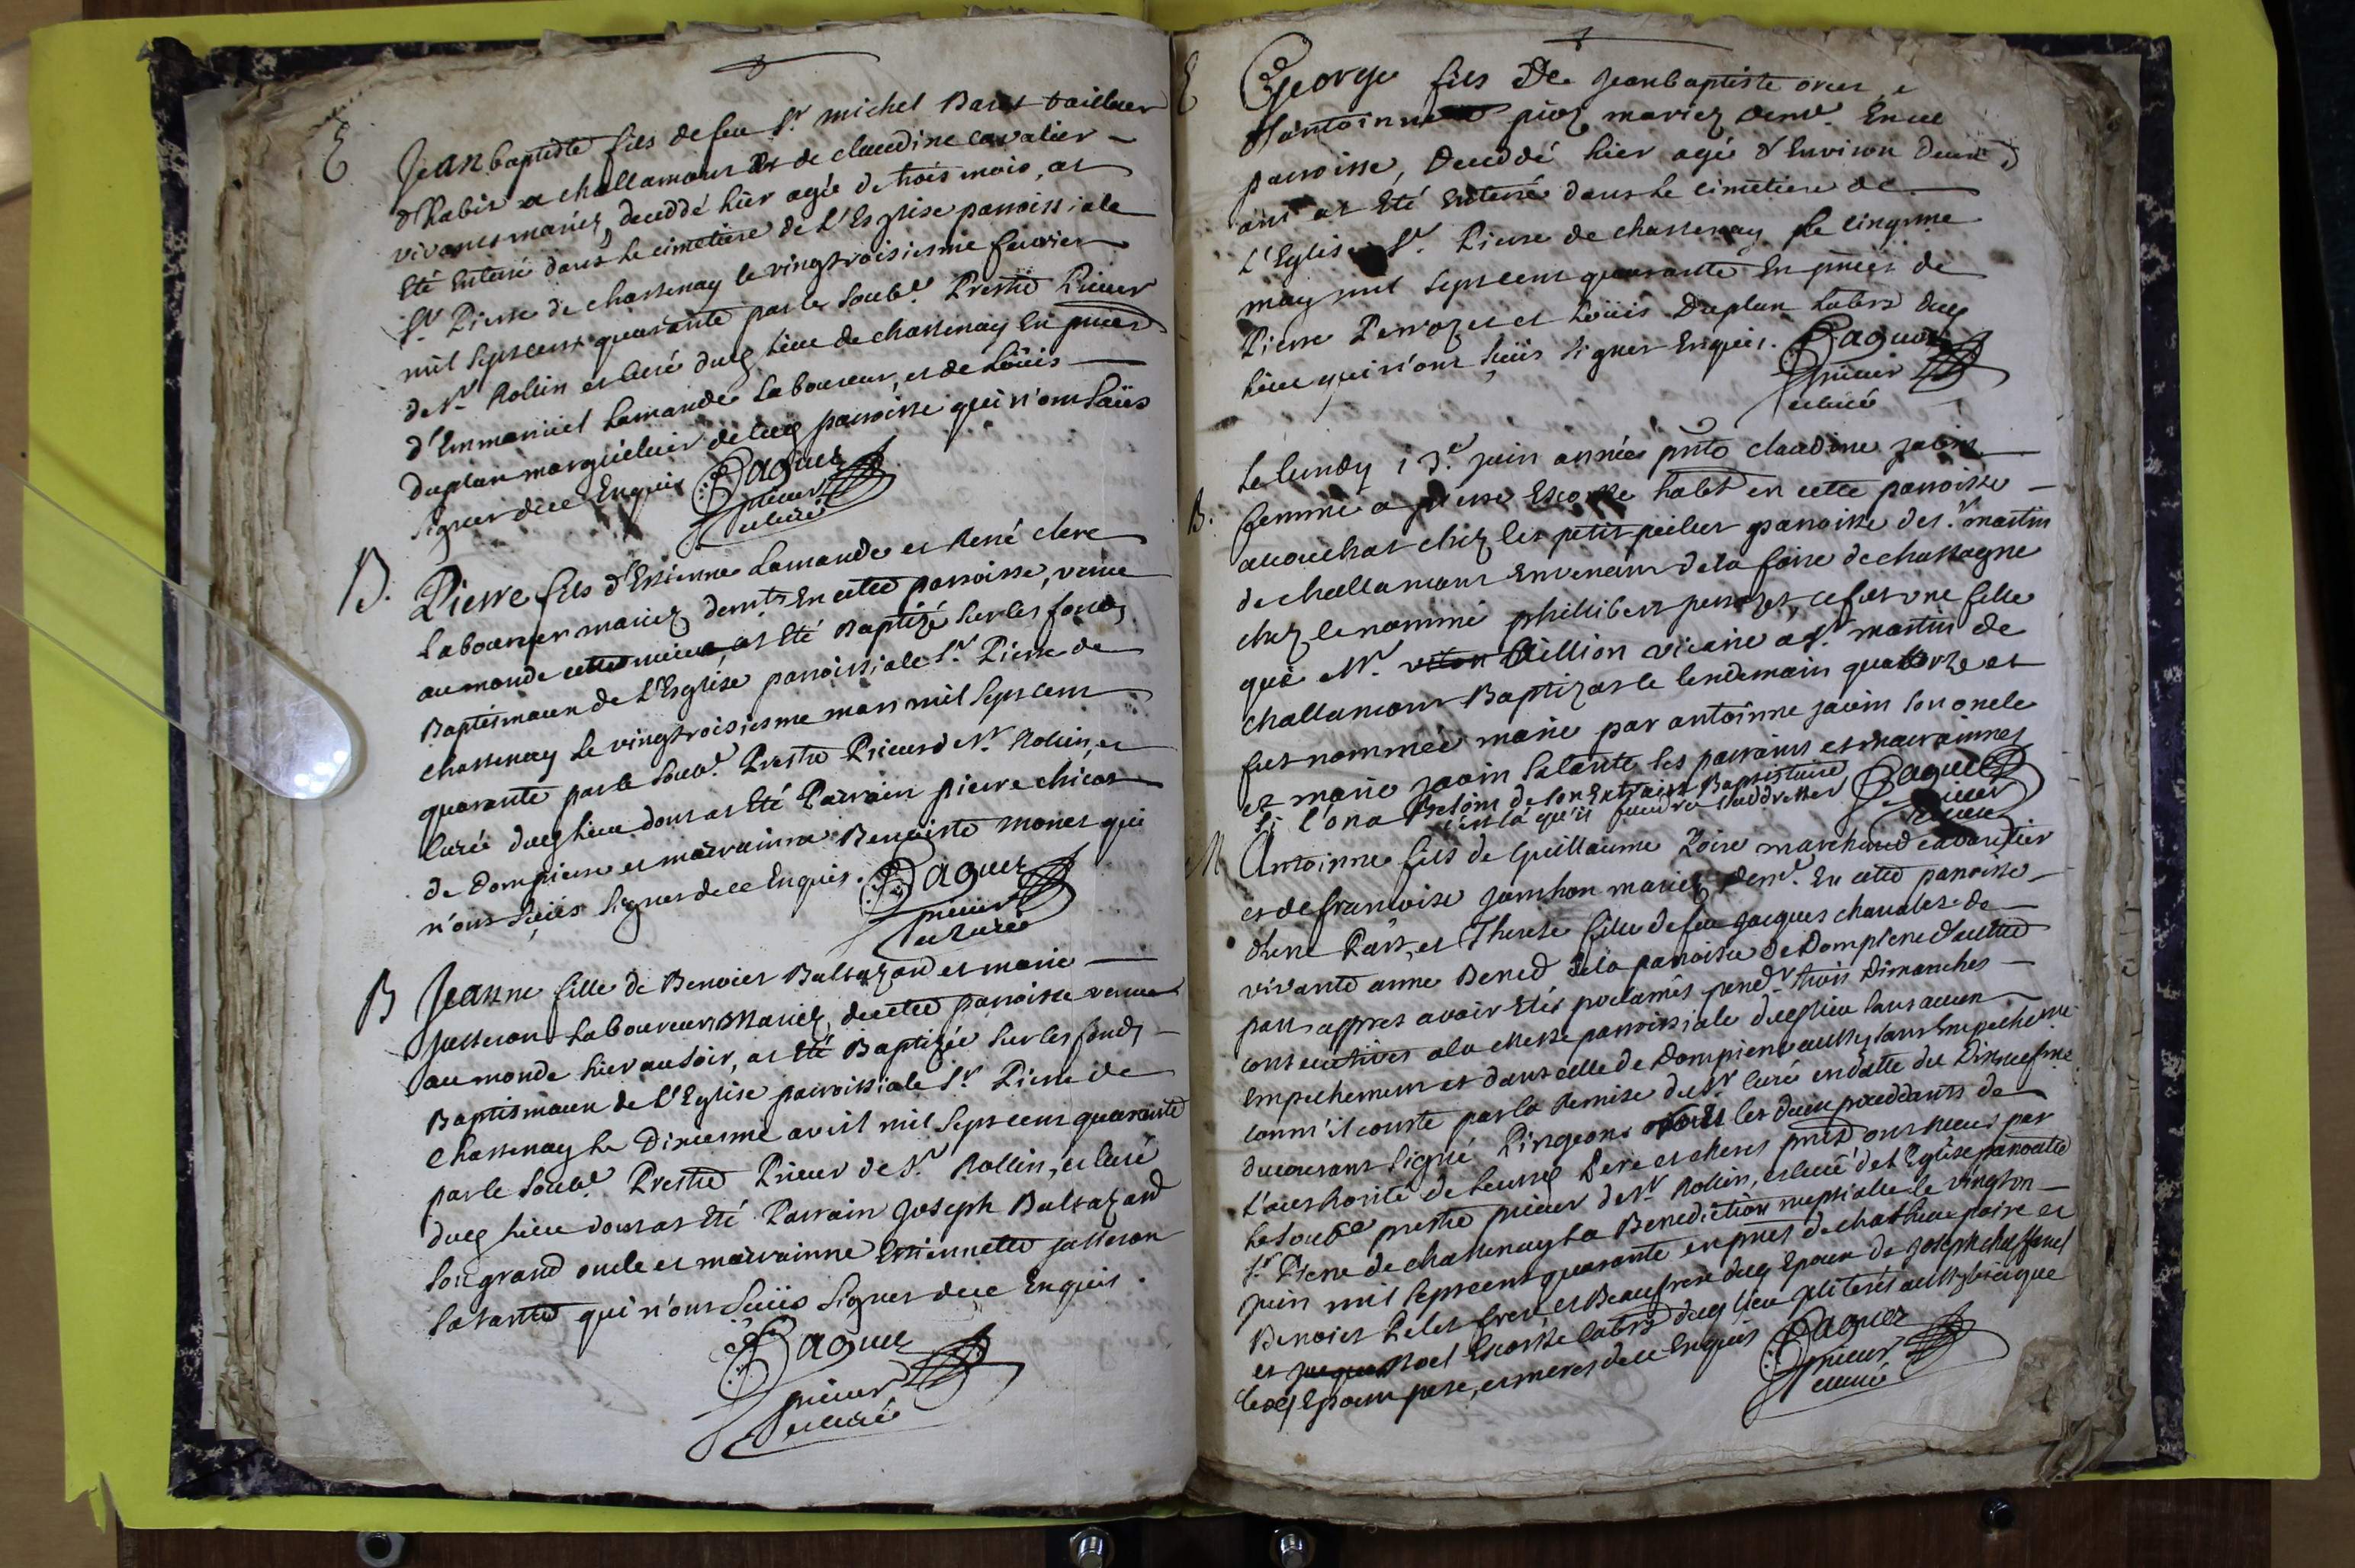 E
Jeanbaptiste fils de feu Sr. michel Baret tailleur
d'habit a challamont et de claudine cavalier
vivants mariéz, deceddé hier agée de trois mois, at
Eté Enterré dans le cimetiere de L'Esglise parroissiale
St. Pierre de chastenay le vingtroisiesme fevrier
mil septcent quarante par le Soubé. Prestre Prieur
de St. Rollin et curé dudq lieu de chastenay En pnces
d'Emmanuel Lamande Laboureur, et de Loüis
duplan marguelier de ladq parroisse qui n'ont Saüs
signer dece Enquis Paguet
prieur
et curé
B.
Pierre fils d'Estienne Lamande et René clerc
Laboureur mariéz demts En cette parroisse, venu
au monde at Eté Baptizé sur les fonds
Baptismaux de L'Esglise parroissiale St. Pierre de
chastenay Le vingtroisiesme mars mil Septcent
quarante par le Soubé. Prestre Prieur de St. Rollin, et
Curée dudq lieu dont at Eté Parrain pierre chicot
de Dompierre et marrainne Benoiste monet qui
n'ont Sçüs Signer de ce Enquis. Paguet
prieur
et curé
B
Jeanne fille de Benoict Baltazard et marie
Jasseron Laboureurs Mariéz, decette parroisse venue
au monde hier au soir, at Eté Baptizée sur les fonds
Baptismaux de L'Eglise parroissiale St. Pierre de
Chastenay Le Dixiesme avril mil Septcent quarante
par le Soubé. Prestre Prieur de St. Rollin, et Curé
dudq lieu dont at Eté Parrain Joseph Baltazard
Son grand oncle et marrainne Estiennette jasseron
Sa tante qui n'ont Sçüs Signer de ce Enquis.
Paguet
prieur
et curé
E
George fils De Jeanbaptiste
d'antoinne mariéz demt. En ce
parroisse, Deceddé hier agée d'Environ deux
ans at Eté Enterré dans le cimetiere de
L'Eglise St. Pierre de chastenay le cinqsme
may mil septcent quarante En pnces de
Pierre Perrozet et Loüis Duplan Labrs dudq
Lieu qui n'ont Sçüs Signer Enquis. Paguet
prieur
et curé
B.
Le lundy 13e. juin année pnte claudine javin
femme a pierre Escosse habt en cette parroisse
accouchat chez les petit peilier parroisse de St. martin
de challamont En venant de la foire de chassagne
chez le nommé phillibert perrozet, ce fut une fille
que Mr. Aillion vicaire a St. martin de
challamont Baptizat le lendemain quattorze et
fut nommée marie par antoinne javin Son oncle
et marie javin Sa tante Ses parrains et marrainnes
Si L'on a Besoins de Son Extrait Baptistaire Paguet
c'est la qu'il faudra S'addresser prieur
et curé
M
Antoinne fils de Guillaume Poire marchand cabartier
et de francoise jamhon mariéz demt. En cette parroisse
d'une Part, et Therese fille de feu jacques chavales de
vivante anne Bened de la parroisse de Dompierre d'autre
part appres avoir Etés proclamés pendt. trois Dimanches
consecutives a la Messe parroissiale dudq lieu sans aucun
Empechement et dans celle de Dompierre aussy sans Empecheme
comm'il conste par la Remise du Sr Curé en datte du
du courant Signé Pingeon, les deux proceddants de
L'authorité de leursq Pere et Meres pnts ont Receu par
Le Soubé prestre prieur de St. Rollin, et curé de L'Eglise parroiale
St. Pierre de chastenay La Benediction nuptialle le vingt
juin mil Septcent quarante en pnces de chatheue poire et
Benoict Pelet frere, et Beaufrere dudq Epoux de joseph
et Noel Escosse labrs dudq lieu
Epoux pere, et meres de ce Enquis Paguet
prieur
et curé